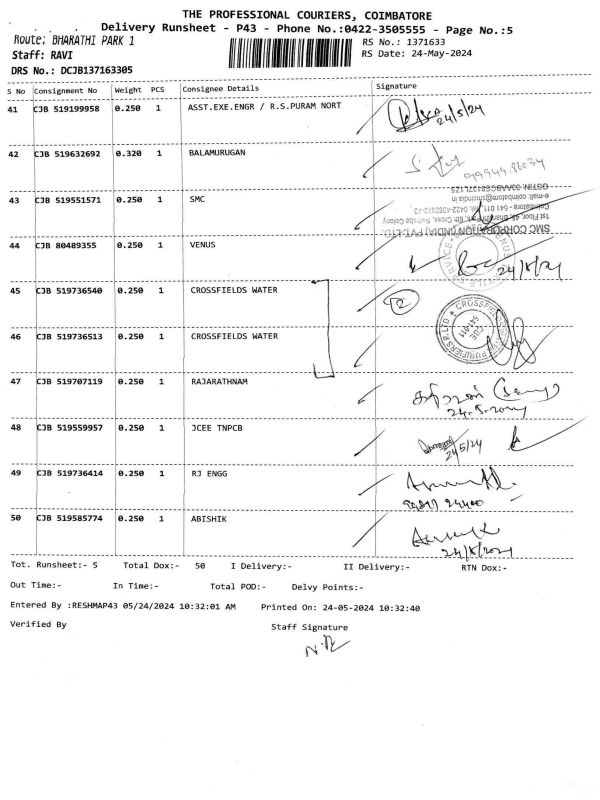 THE PROFESSIONAL COURIERS, COIMBATORE
Delivery Runsheet - P43 - Phone No.:0422-3505555 - Page No.:5
Route: BHARATHI PARK 1
RS No.: 1371633
Staff: RAVI
RS Date: 24-May-2024
DRS No.: DCJB137163305
S No Consignment No Weight PCS Consignee Details Signature
41 CJB 519199958 0.250 1 ASST.EXE.ENGR / R.S.PURAM NORT
24/5/24
42 CJB 519632692 0.320 1 BALAMURUGAN
43 CJB 519551571 0.250 1 SMC
SMC CORPORATION (INDIA) PVT.LTD.
44 CJB 80489355 0.250 1 VENUS
45 CJB 519736540 0.250 1 CROSSFIELDS WATER
46 CJB 519736513 0.250 1 CROSSFIELDS WATER
47 CJB 519707119 0.250 1 RAJARATHNAM
24.5.2024
48 CJB 519559957 0.250 1 JCEE TNPCB
24/5/24
49 CJB 519736414 0.250 1 RJ ENGG
50 CJB 519585774 0.250 1 ABISHIK
Tot. Runsheet:- 5 Total Dox:- 50 I Delivery:- II Delivery:- RTN Dox:-
Out Time:- In Time:- Total POD:- Delvy Points:-
Entered By :RESHMAP43 05/24/2024 10:32:01 AM Printed On: 24-05-2024 10:32:40
Verified By Staff Signature